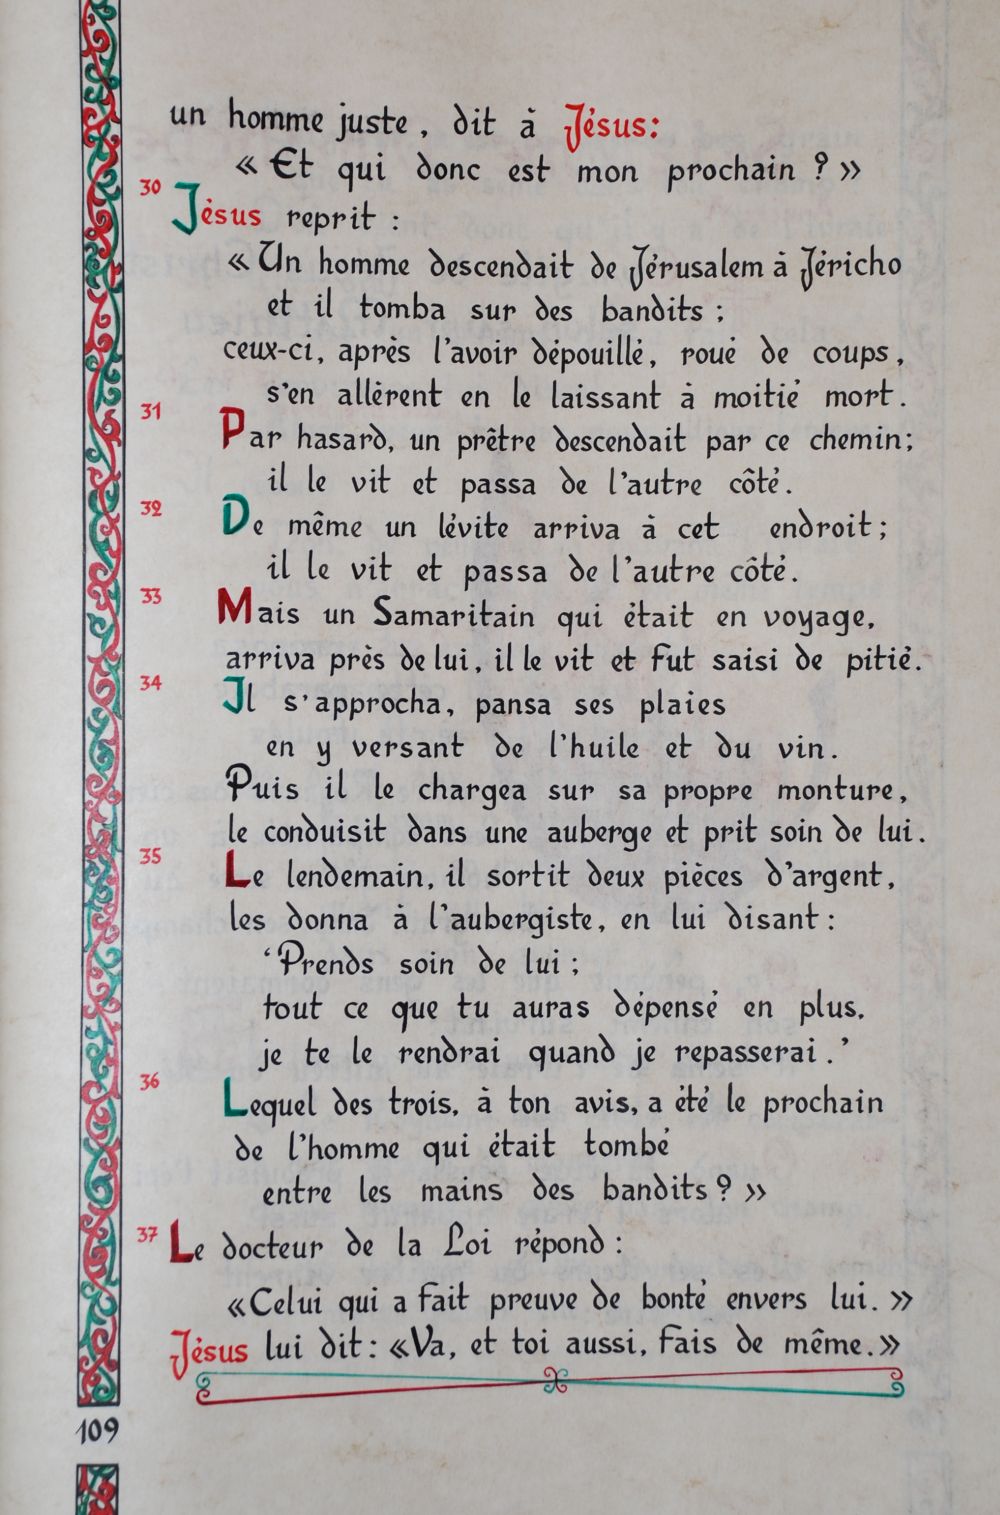 un homme juste, dit à Jésus:
« Et qui donc est mon prochain ? »
30
Jésus reprit :
« Un homme descendait de Jérusalem à Jéricho
et il tomba sur des bandits ;
ceux-ci, après l'avoir dépouillé, roué de coups,
s'en allèrent en le laissant à moitié mort.
31
Par hasard, un prêtre descendait par ce chemin;
il le vit et passa de l'autre côté.
32
De même un lévite arriva à cet endroit;
il le vit et passa de l'autre côté.
33
Mais un Samaritain qui était en voyage,
arriva près de lui, il le vit et fut saisi de pitié.
34
Il s'approcha, pansa ses plaies
en y versant de l'huile et du vin.
Puis il le chargea sur sa propre monture,
le conduisit dans une auberge et prit soin de lui.
35
Le lendemain, il sortit deux pièces d'argent,
les donna à l'aubergiste, en lui disant :
‘Prends soin de lui ;
tout ce que tu auras dépensé en plus,
je te le rendrai quand je repasserai.’
36
Lequel des trois, à ton avis, a été le prochain
de l'homme qui était tombé
entre les mains des bandits ? »
37
Le docteur de la Loi répond :
«Celui qui a fait preuve de bonté envers lui. »
Jésus lui dit : «Va, et toi aussi, fais de même.»
109